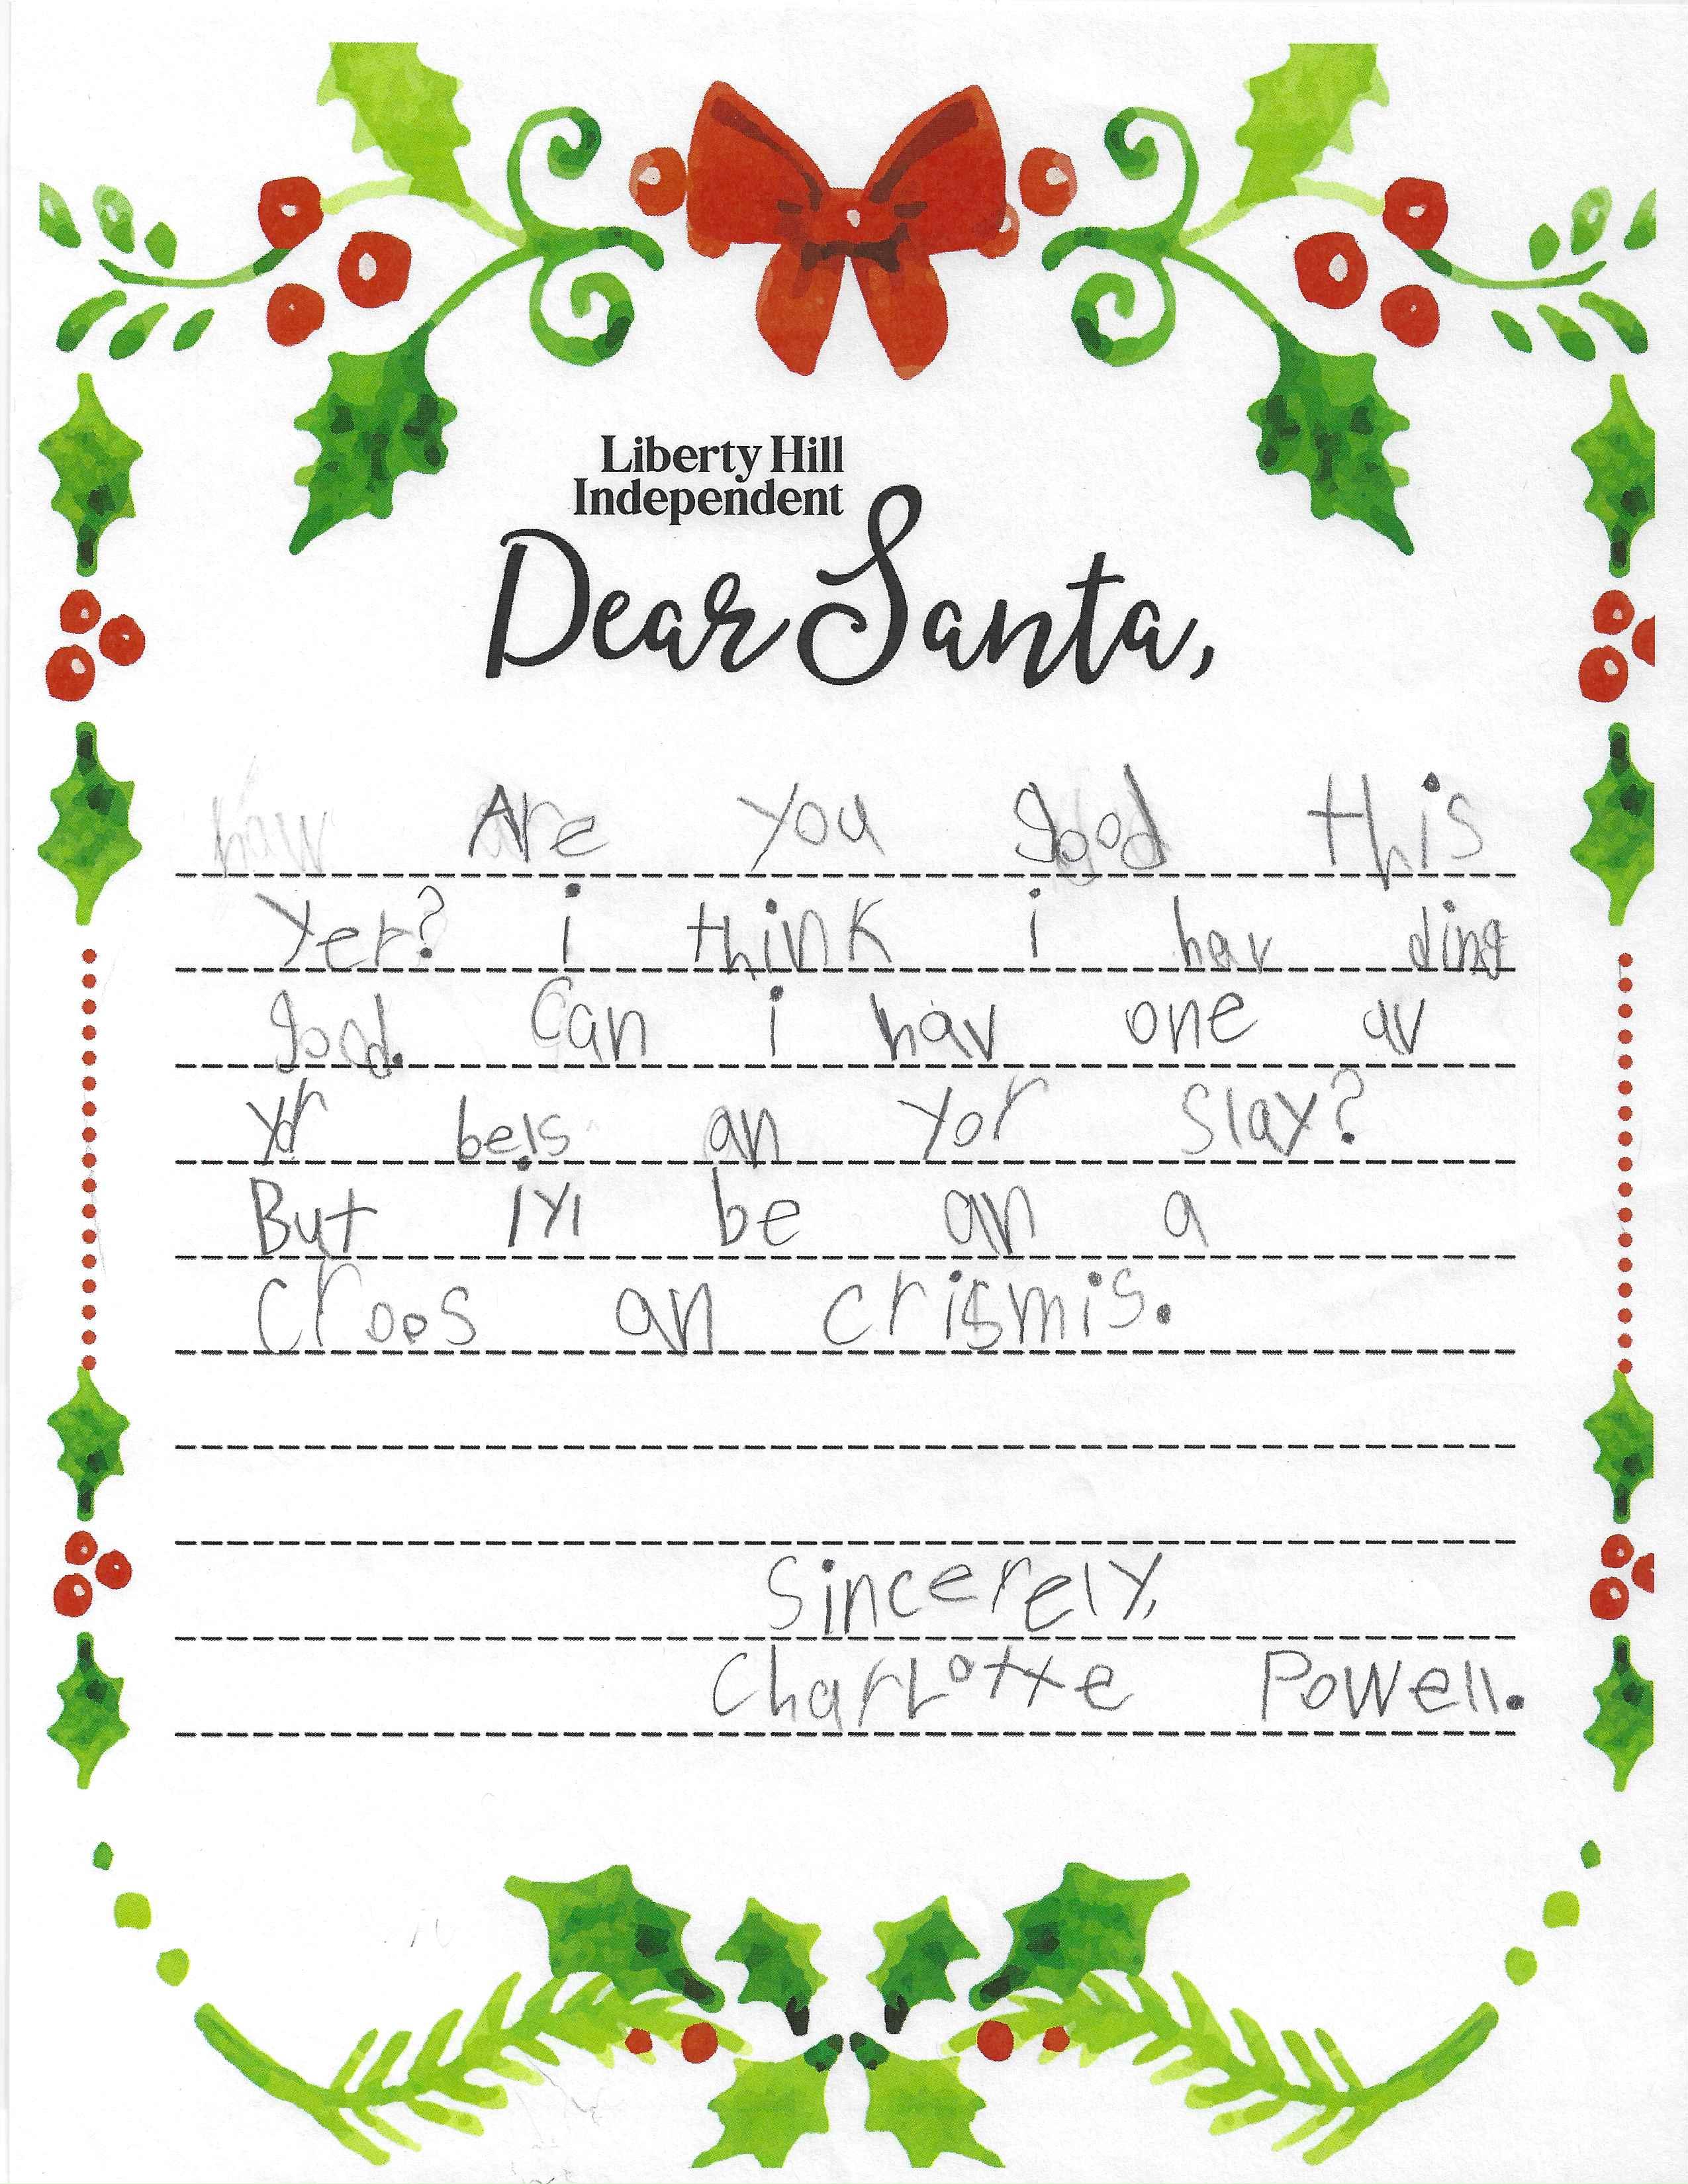 Liberty Hill
Independent
Dear Santa,
Are you good this
yer? i think i hav ding
good. Can i hav one av
yor bels an yor slay?
But iyl be an a
croos an crismis.
Sincerely,
CharLotte Powell.